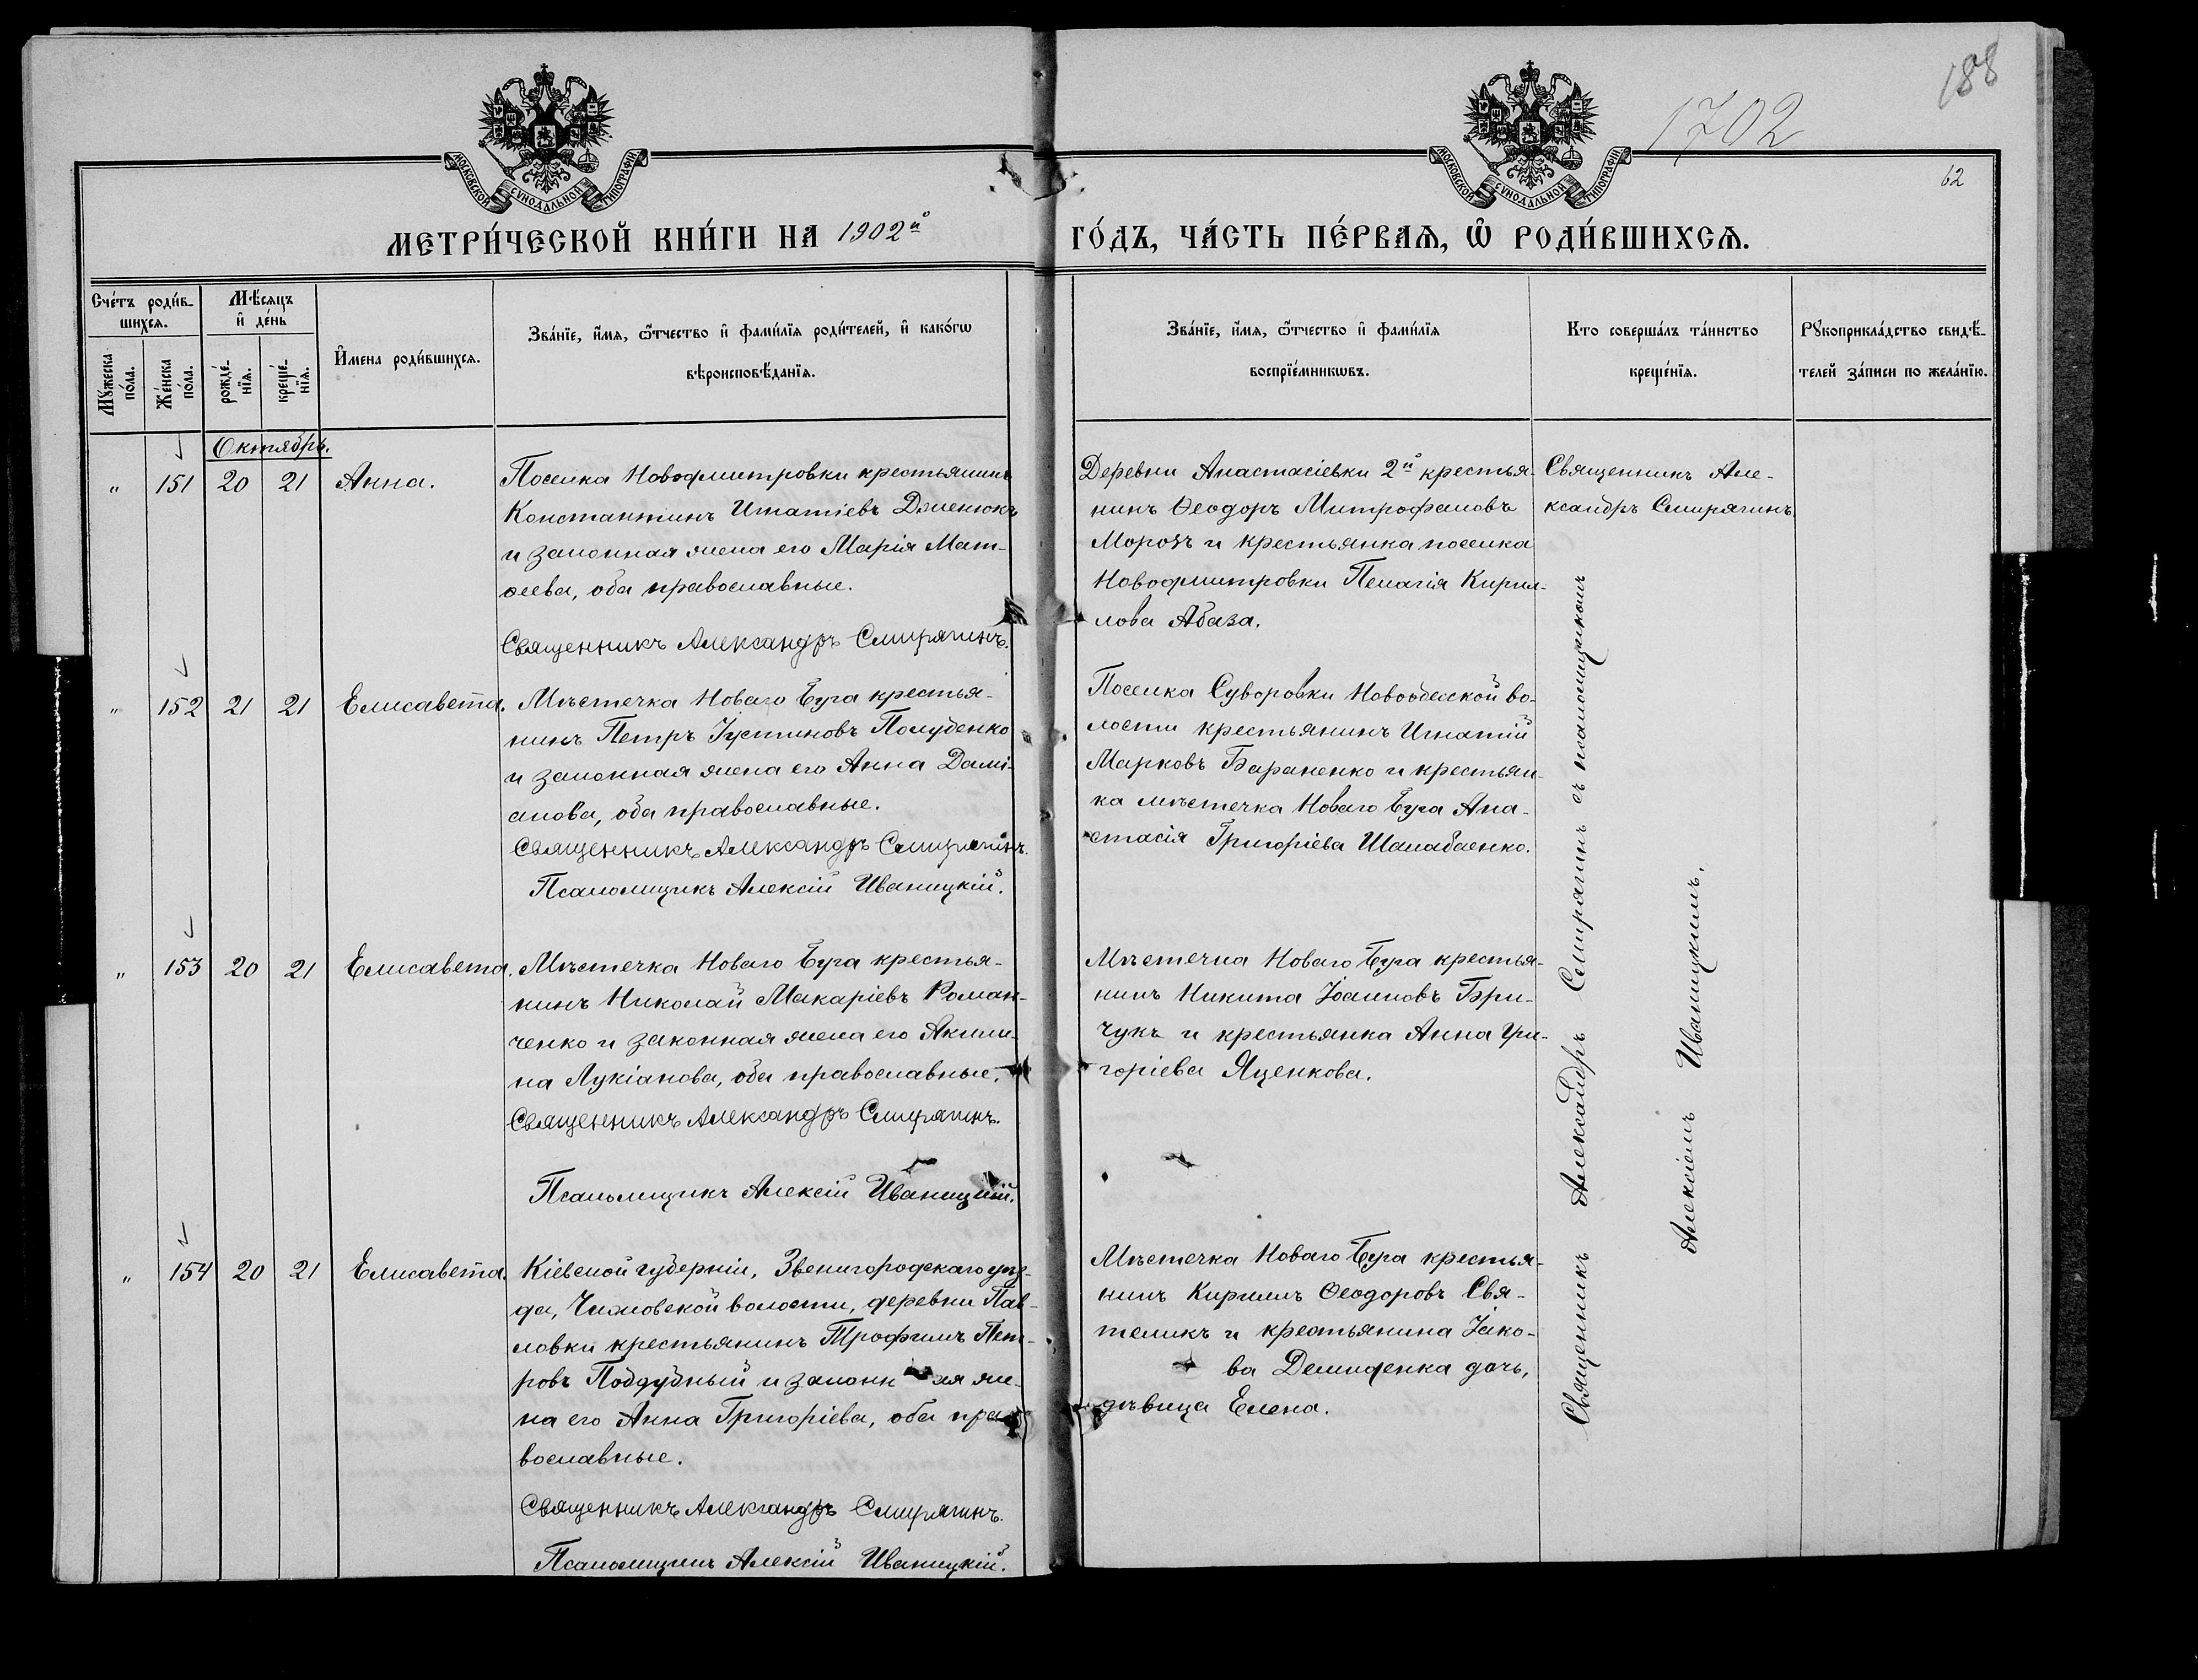 188
1702
62
МОСКОВСКОЙ СѴНОДАЛЬНОЙ ТИПОГРАФІИ
МОСКОВСКОЙ СѴНОДАЛЬНОЙ ТИПОГРАФІИ
МЕТРИ́ЧЕСКОЙ КНИ́ГИ НА 1902й
ГО́ДЪ, ЧА́СТЬ ПЕ́РВАѦ, Ѡ РОДИ́ВШИХСѦ.
Сче́тъ роди́в-
шихсѧ.
Мꙋ́жеска по́ла.
Же́нска по́ла.
Мѣ́сѧцъ
и҆ де́нь
рожде́-
нїѧ.
креще́-
нїѧ.
И҆мена роди́вшихсѧ.
Зва́нїе, и҆́мѧ, ѻ҆́тчество и҆ фами́лїѧ роди́телей, и҆ како́гѡ
вѣроисповѣ́данїѧ.
Зва́нїе, и҆́мѧ, ѻ҆́тчество и҆ фами́лїѧ
воспрїе́мникѡвъ.
Кто соверша́лъ та́инство
креще́нїѧ.
Рꙋкоприкла́дство свидѣ́-
телей за́писи по жела́нїю.
Октябрь.
„ 151 20 21 Анна.
Поселка Новодмитровки крестьянинъ
Константинъ Игнатіевъ
и законная жена его Марія Мат-
ѳеева, оба православные.
Священникъ Александръ Смирягинъ.
Деревни Анастасіевки 2й крестья-
нинъ Ѳеодоръ Митрофановъ
Морозъ и крестьянка поселка
Новодмитровки Пелагія Кирил-
лова Абаза.
Священникъ Але-
ксандръ Смирягинъ.
„ 152 21 21 Елисавета.
Мѣстечка Новаго Буга крестья-
нинъ Петръ Іустиновъ Полубенко
и законная жена его Анна Дамі-
анова, оба православные.
Священникъ Александръ Смирягинъ.
Псаломщикъ Алексій Иваницкій.
Поселка Суворовки Новоодесской во-
лости крестьянинъ Игнатій
Марковъ Бараненко и крестьян-
ка мѣстечка Новаго Буга Ана-
стасія Григоріева Шалабаенко.
„ 153 20 21 Елисавета.
Мѣстечка Новаго Буга крестья-
нинъ Николай Макаріевъ Роман-
ченко и законная жена его Акили-
на Лукіанова, оба православные.
Священникъ Александръ Смирягинъ.
Псаломщикъ Алексій Иваницкій.
Мѣстечка Новаго Буга крестья-
нинъ Никита Іоанновъ Бри-
чукъ и крестьянка Анна Гри-
горіева Яценкова.
„ 154 20 21 Елисавета.
Кіевской губерніи, Звенигородскаго уѣз-
да, Чижовской волости, деревни Пав-
ловки крестьянинъ Трофимъ Пет-
ровъ Поддубный и законн ая же-
на его Анна Григоріева, оба пра-
вославные.
Священникъ Александръ Смирягинъ.
Псаломщикъ Алексій Иваницкій.
Мѣстечка Новаго Буга крестья-
нинъ Кириллъ Ѳеодоровъ Свя-
теликъ и крестьянина Іако-
ва Демиденка дочь,
дѣвица Елена.
Священникъ Александръ Смирягинъ съ псаломщикомъ
Алексіемъ Иваницкимъ.